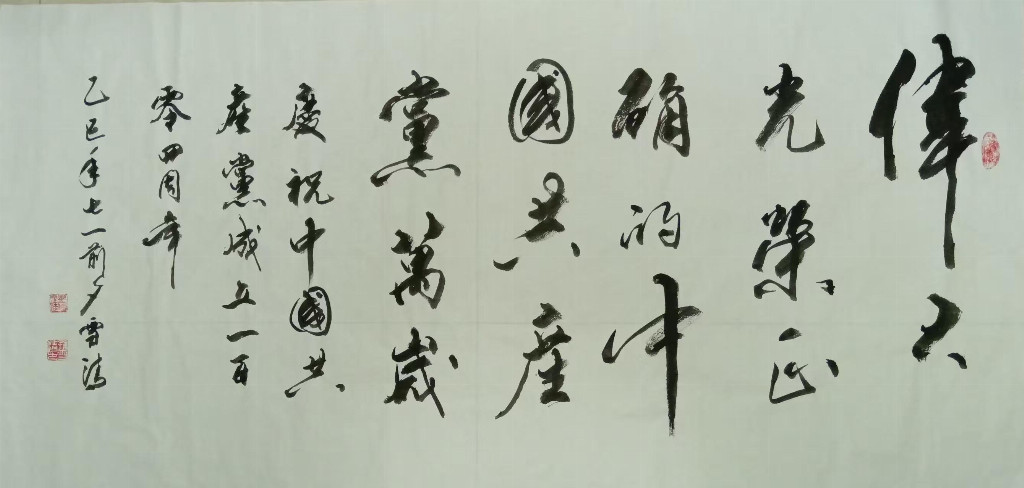 偉大
光榮正
確的中
國共產
黨萬歲
慶祝中國共
產黨成立一百
零四周年
乙巳年七一前夕雪濤